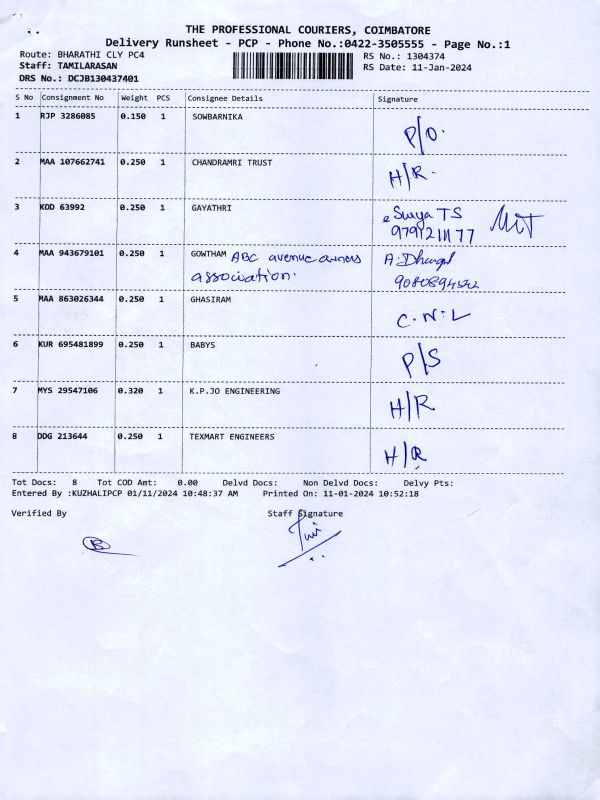 THE PROFESSIONAL COURIERS, COIMBATORE
Delivery Runsheet - PCP - Phone No.:0422-3505555 - Page No.:1
Route: BHARATHI CLY PC4 RS No.: 1304374
Staff: TAMILARASAN RS Date: 11-Jan-2024
DRS No.: DCJB130437401
S No Consignment No Weight PCS Consignee Details Signature
1 RJP 3286085 0.150 1 SOWBARNIKA P/O.
2 MAA 107662741 0.250 1 CHANDRAMRI TRUST H/R.
3 KOD 63992 0.250 1 GAYATHRI Surya TS
4 MAA 943679101 0.250 1 GOWTHAM ABC avenue owners
association.
5 MAA 863026344 0.250 1 GHASIRAM C.N.L
6 KUR 695481899 0.250 1 BABYS P/S
7 MYS 29547106 0.320 1 K.P.JO ENGINEERING H/R
8 DDG 213644 0.250 1 TEXMART ENGINEERS H/R
Tot Docs: 8 Tot COD Amt: 0.00 Delvd Docs: Non Delvd Docs: Delvy Pts:
Entered By :KUZHALIPCP 01/11/2024 10:48:37 AM Printed On: 11-01-2024 10:52:18
Verified By Staff Signature